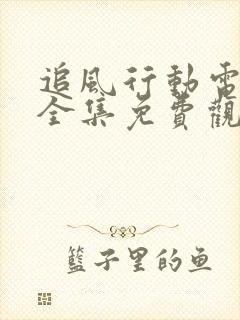 追風行動電
全集免費觀
籃子里的鱼